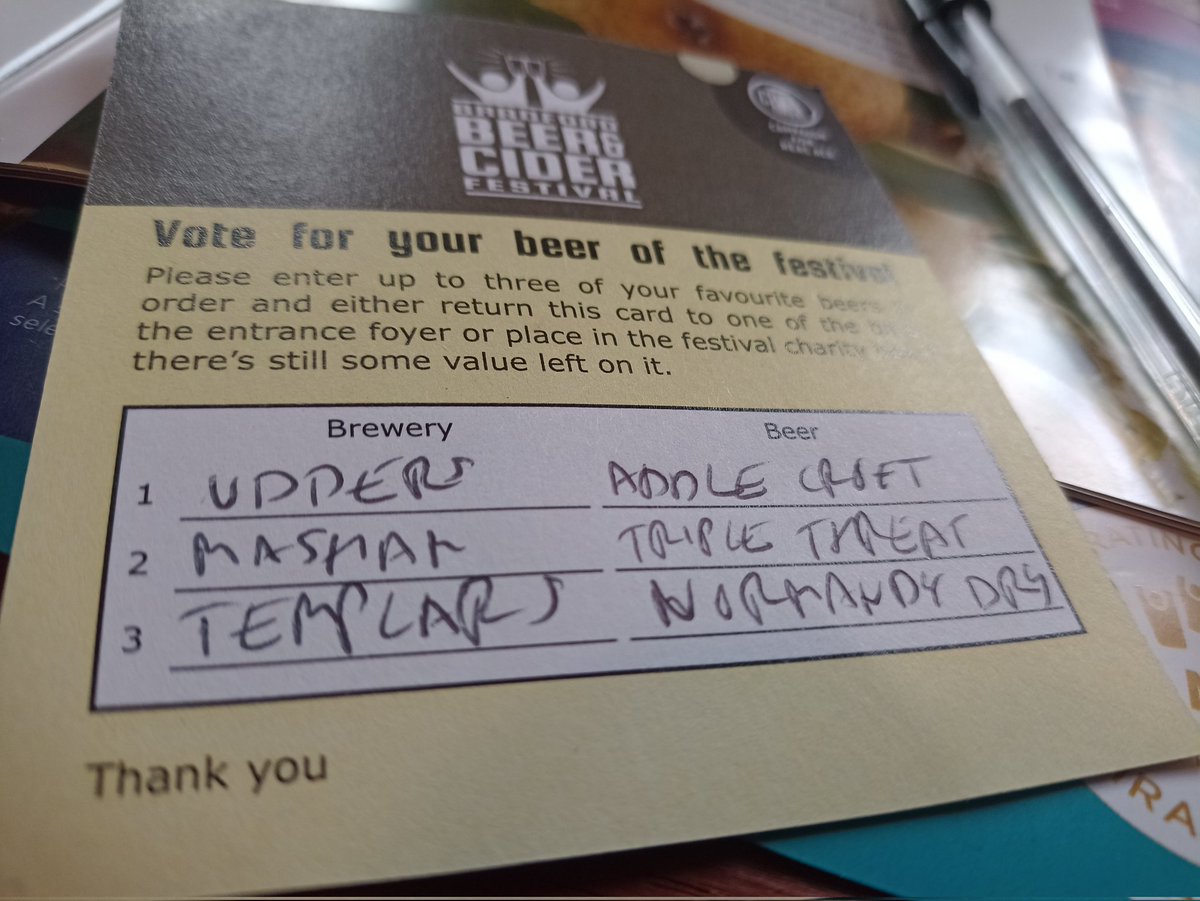 BEER &
CIDER
FESTIVAL
Vote for your beer of the festival
Please enter up to three of your favourite beers
order and either return this card to one of the
the entrance foyer or place in the festival charity
there's still some value left on it.
Brewery Beer
1 UDDERS ADDLE CROFT
2 MASHAM TRIPLE THREAT
3 TEMPLARS NORMANDY DRY
Thank you